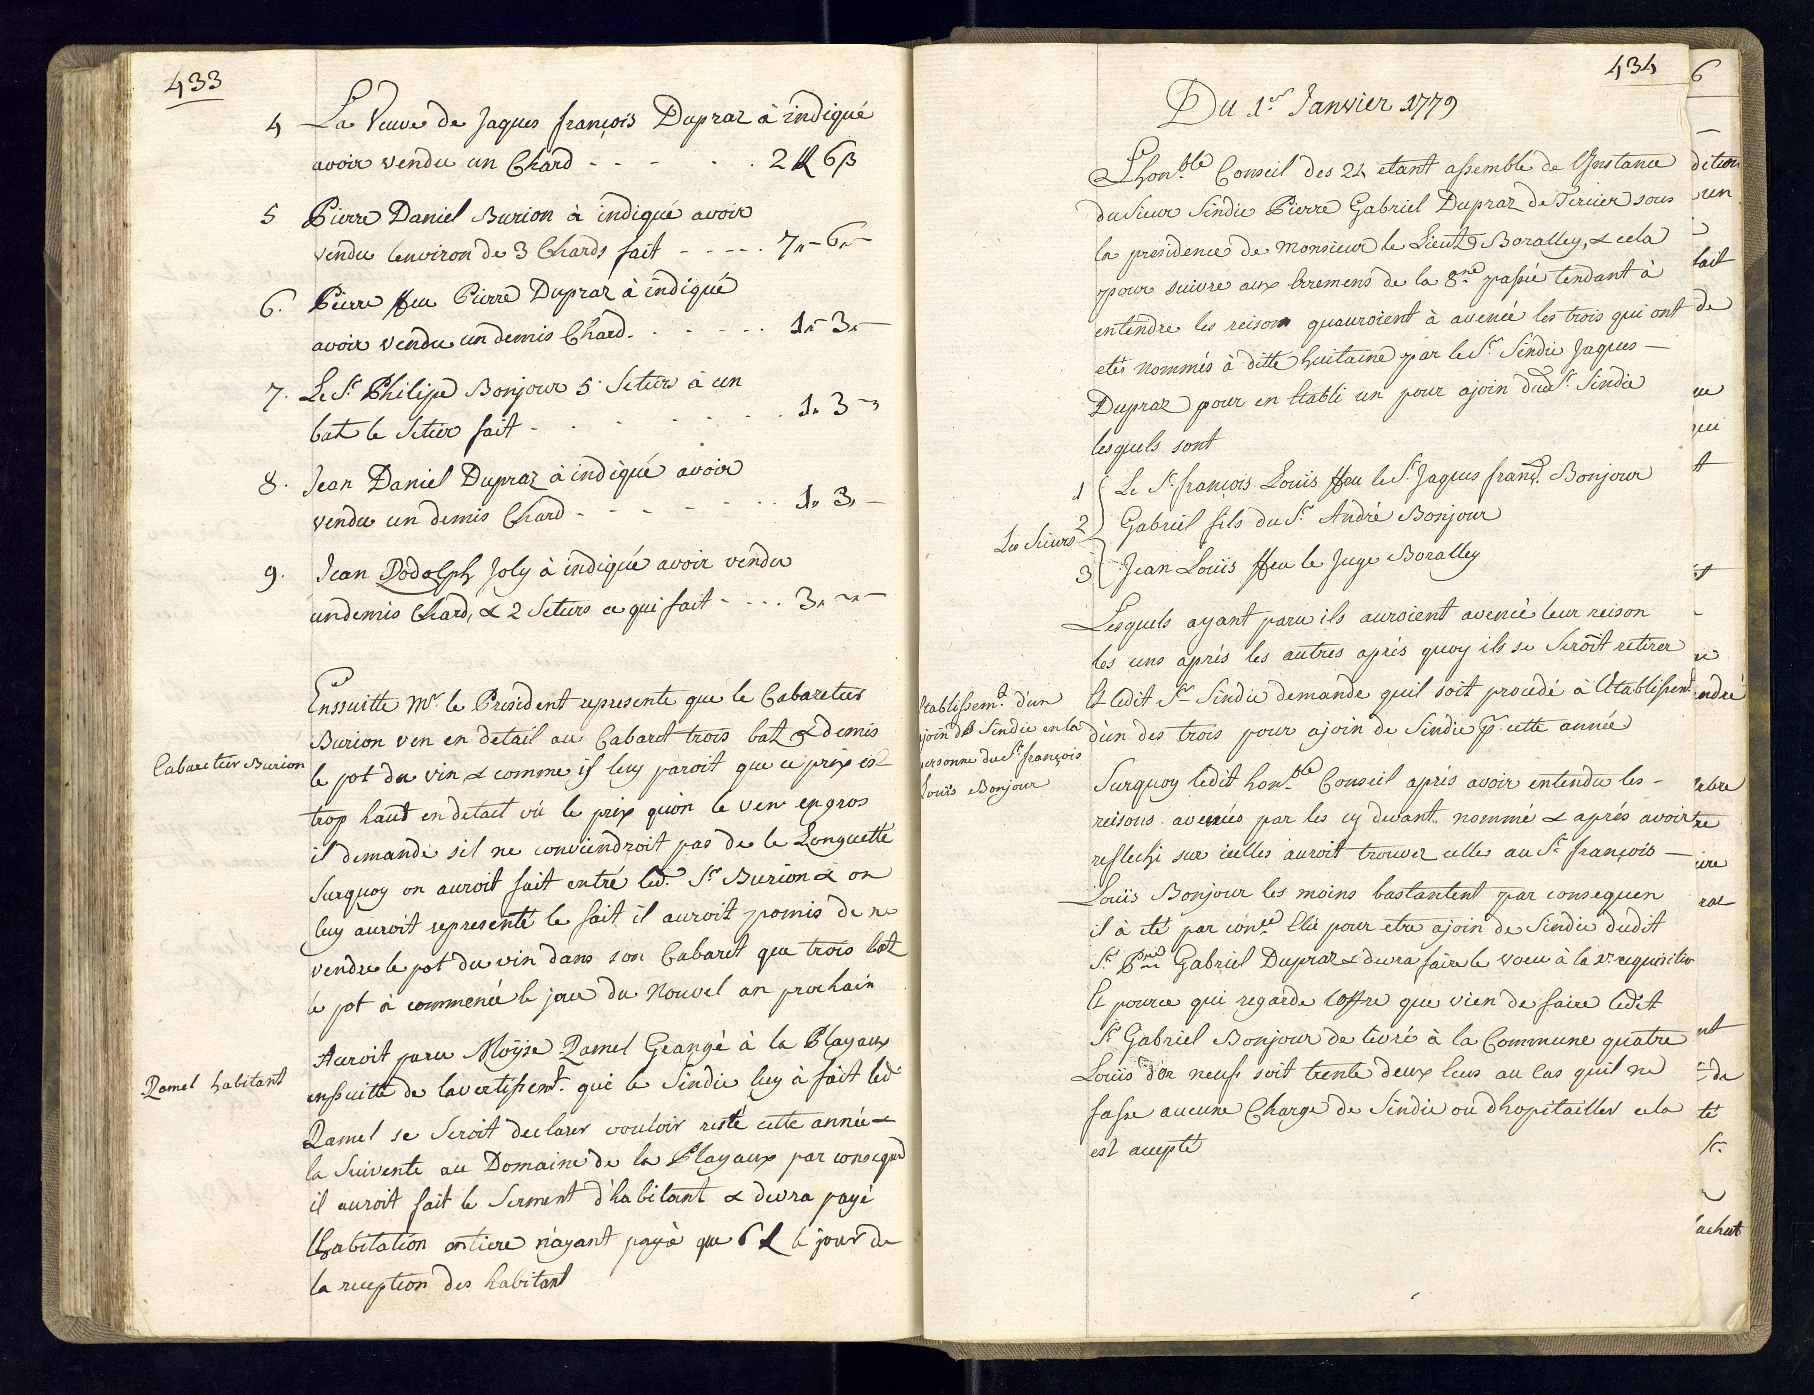 433
4 La Veuve de Jaques françois Dupraz à indiqué
avoir vendu un Chard - - - - - 2 ℔ 6 β
5 Pierre Daniel Burion à indiqué avoir
vendu lenviron de 3 Chards fait - - - - - 7 „- 6 „-
6. Pierre ffeu Pierre Dupraz à indiqué
avoir vendu un demis Chard. - - - - - 1 „- 3 „-
7. Le Sr. Philipe Bonjour 5 Setier à un
batz le Setier fait - - - - - 1 „ 3 „-
8. Jean Daniel Dupraz à indiqué avoir
vendu un demis Chard - - - - - 1 „ 3 „-
9. Jean Rodolph Joly à indiqué avoir vendu
un demis Chard, & 2 Setiers ce qui fait - - - - 3 „ - „-
Enssuitte Mr. le President represente que le Cabaretier
Burion ven en detail au Cabaret trois batz & demis
Cabaretier Burion
le pot du vin & comme il luy paroit que ce prix est
trop haut en detail vû le prix quon le ven en gros
il demande sil ne conviendroit pas de le Longuette
Surquoy on auroit fait entré led. Sr. Burion & on
luy auroit representé le fait il auroit pomis de ne
vendre le pot du vin dans son Cabaret que trois batz
le pot à commencé le jour du Nouvel an prochain
Auroit paru Moÿse Ramel Grangé à la Playaux
Ramel habitant
enssuitte de lavertissemt. que le Sindic luy à fait led.
Ramel se Seroit declarer vouloir resté cette année &
la Suivente au Domaine de la Playaux par consequend
il auroit fait le Serment d'habitant & devra payé
lhabitation entiere n'ayant payé que 6 ℔ le jour de
la reception des habitant
434
Du 1er Janvier 1779
Lhonble Conseil des 24 etant assemblé de lInstance
du Sieur Sindic Pierre Gabriel Dupraz de Tercier sous
la presidence de Monsieur le Lieut. Boralley, & cela
pour suivre aux Erremens de la 8ne passée tendant à
entendre les reison quauroient à avencé les trois qui ont
etés nommés à ditte huitaine par le Sr. Sindic Jaques
Dupraz pour en Etabli un pour ajoin dud. Sr. Sindic
lesquels sont
1 Le Sr. françois Louis ffeu le Sr. Jaques franç. Bonjour
Les Sieurs 2 Gabriel fils du Sr. André Bonjour
3 Jean Louis ffeu le Juge Boralley
Lesquels ayant paru ils auroient avencé leur reison
les uns aprés les autres aprés quoy ils se Seroit retirer
Et ledit Sr. Sindic demande quil soit procedé à lEtablissent
d'un des trois pour ajoin de Sindic p. cette année
Etablissemt. d'un
ajoin de Sindic en la
personne du Sr. françois
Louis Bonjour
Surquoy ledit honble Conseil aprés avoir entendu les
reisons avencées par les cy devant nommé & aprés avoir
reflechi sur icelles auroit trouver celles au Sr. françois
Louis Bonjour les moins bastantent par consequen
il à eté par conse. Elû pour etre ajoin de Sindic dudit
Sr. Pre Gabriel Dupraz & devra faire le voeu à la 1re requisition
Et pource qui regarde loffre que vien de faire ledit
Sr. Gabriel Bonjour de livré à la Commune quatre
Louis d'or neuf soit trente deux Ecus au Cas quil ne
fasse aucune Charge de Sindic ou d'hopitailler cela
est accepté